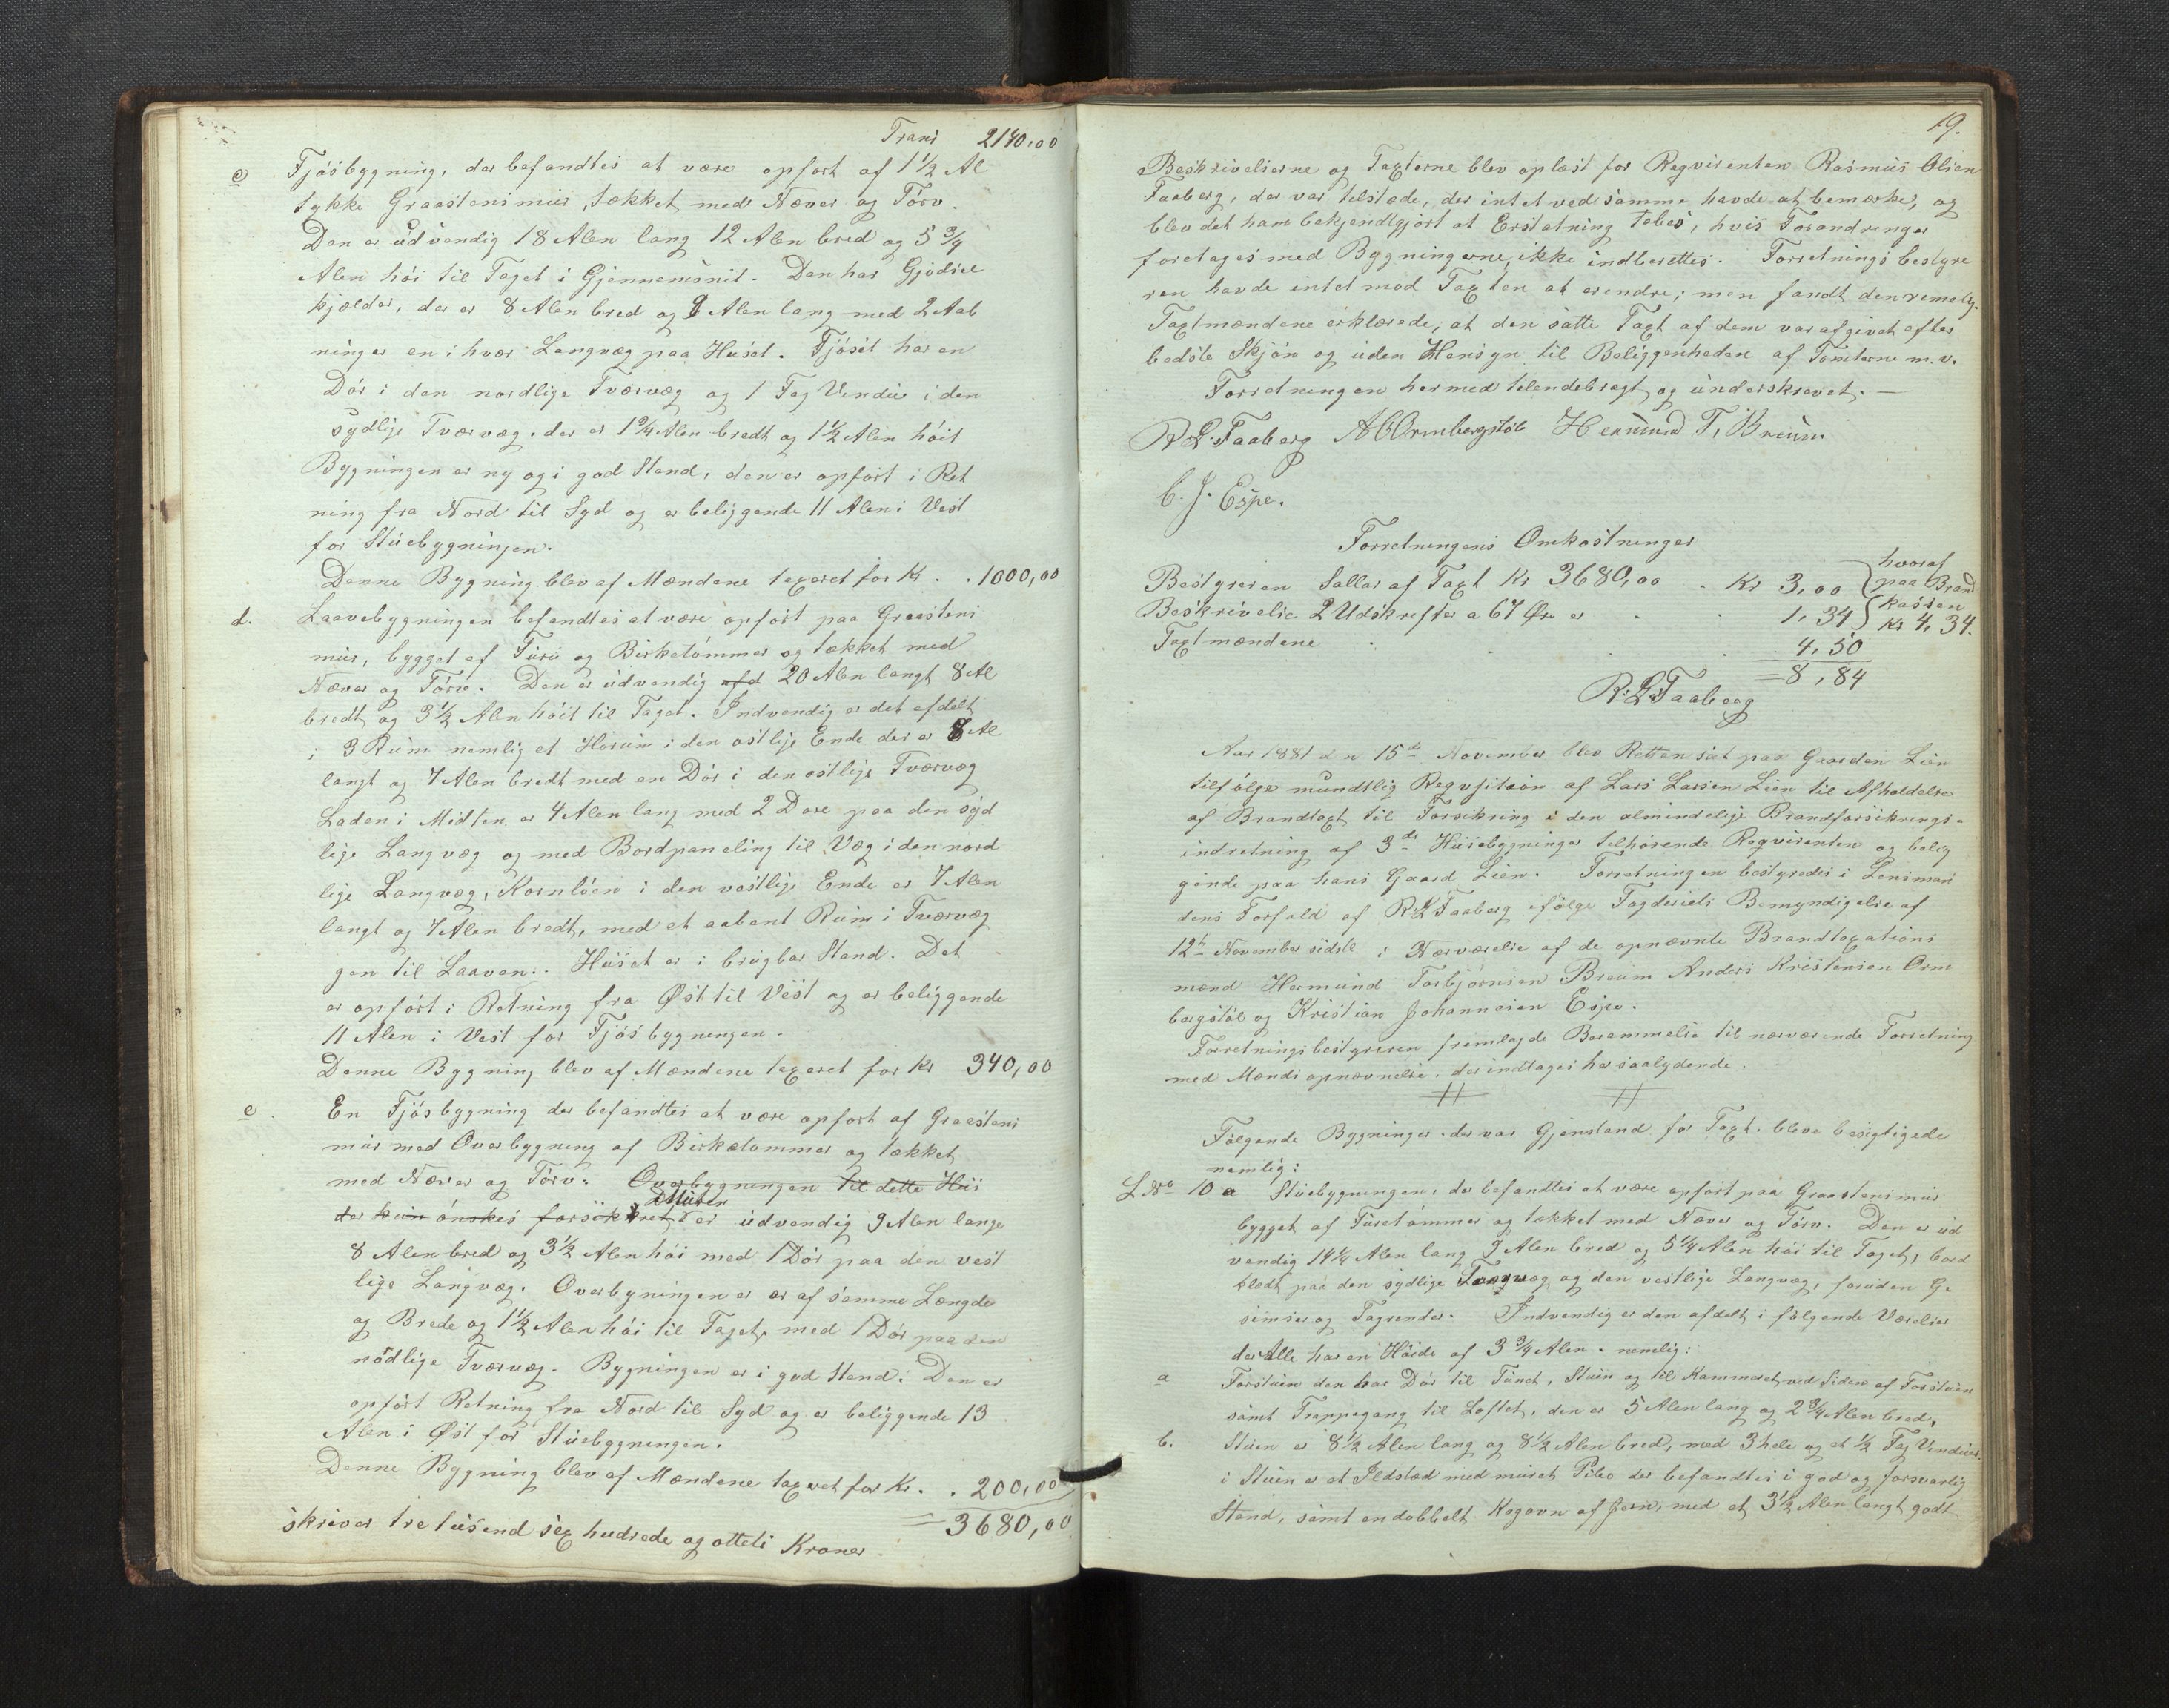 Trans 2140,00
c Fjósbygning, der befandtes at være opført af 1½ Al
tykke Graastensmur, tækket med Næver og Törv.
Den er udvendig 18 Alen lang 12 Alen bred og 5 3/4
Alen høi til Taget i Gjennemsnit. Den har Gjødsel
kjælder, der er 8 Alen bred og 9 Alen lang med 2 Aab
ninger en i hver Langvæg paa Huset. Fjøset har en
Dör i den nordlige Tværvæg og 1 Fag Vindue i den
sydlige Tværvæg, der er 1 3/4 Alen bredt og 1½ Alen høit
Bygningen er ny og i god Stand, den er opført i Ret
ning fra Nord til Syd og er beliggende 11 Alen i Vest
for Stuebygningen.
Denne Bygning blev af Mændene taxeret for Kr . . 1000,00
d. Laavebygningen befandtes at være opført paa Graastens
mur, bygget af Furu og Birketømmer og tækket med
Næver og Törv. Den er udvendig afd 20 Alen langt 8 Al
bredt og 3½ Alen høit til Taget. Indvendig er det afdelt
i 3 Rum nemlig et Hørum i den østlige Ende der er 8 Al
langt og 7 Alen bredt med en Dör i den østlige Tværvæg
Laden i Midten er 4 Alen lang med 2 Døre paa den syd
lige Langvæg og med Bordpaneling til Væg i den nord
lige Langvæg, Kornlöen i den vestlige Ende er 7 Alen
langt og 7 Alen bredt, med et aabent Rum i Tværvæg
gen til Laaven. Huset er i brugbar Stand. Det
er opført i Retning fra Øst til Vest og er beliggende
11 Alen i Vest for Fjøsbygningen.
Denne Bygning blev af Mændene taxeret for Kr 340,00
e. En Fjósbygning der befandtes at være opført af Graastens
mur med Overbygning af Birketømmer og tækket
med Næver og Törv. Overbygningen til dette Hus
Muren
der kun ønskes forsikkret er udvendig 9 Alen lange
8 Alen bred og 3½ Alen høi med 1 Dör paa den vest
lige Langvæg. Overbyningen er er af samme Længde
og Brede og 1½ Alen høi til Taget, med 1 Dör paa den
nodlige Tværvæg. Bygningen er i god Stand. Den er
opført Retning fra Nord til Syd og er beliggende 13
Alen i Øst for Stuebygningen.
Denne Bygning blev af Mændene taxeret for Kr. . 200,00
= 3680,00
skriver tre tusend sex hudrede og otteti Kroner
19.
Beskrivelserne og Taxterne blev oplæst for Reqvirenten Rasmus Olsen
Faaberg, der var tilstæde, der intet ved samme havde at bemærke, og
blev det ham bekjendtgjort at Erstatning tabes, hvis Forandringer
foretages med Bygningerne, ikke indberettes. Forretningsbestyre
ren havde intet mod Taxten at erendre; men fandt den remelig.
Taxtmændene erklærede, at den satte Taxt af dem var afgivet efter
bedste Skjön og uden Hensyn til Beliggenheden af Tomterne m. v.
Forretningen hermed tilendebragt og underskrevet. —
R L. Faaberg A C Ormbergstøl Hermund T. Breüm
C. J. Espe.
Forretningens Omkostninger
Bestyreren Sallar af Taxt Kr 3680,00 . Kr 3,00
Beskrivelse 2 Udskrifter a 67 Øre er . . 1,34
hvoraf
paa Brand
kassen
Kr 4,34.
Taxtmændene . . . 4,50
= 8,84
R. L. Faaberg
Aar 1881 den 15de November blev Retten sat paa Gaarden Lien
tilfölge mundtlig Reqvisition af Lars Larsen Lien til Afholdelse
af Brandtaxt til Forsikring i den almindelige Brandforsikrings-
indretning af 3de Husebygninger tilhørende Reqvirenten og belig
gende paa hans Gaard Lien. Forretningen bestyredes i Lensman
dens Forfald af R L Faaberg ifølge Fogderiets Bemyndigelse af
12te November sidstl i Nærværelse af de opnævnte Brandtaxations
mænd Hermund Torbjörnsen Breum Anders Kristensen Orm
bergstøl og Kristian Johannesen Espe.
Forretningsbestyreren fremlagde Berammelse til nærværende Forretning
med Mændsopnævnelse, der indtages her saalydende.
Følgende Bygninger, der var Gjenstand for Taxt, bleve besigtigede
nemlig:
L No 10 a Stuebygningen, der befandtes at være opført paa Graastensmur
bygget af Furetömmer og tækket med Næver og Törv. Den er ud
vendig 14¼ Alen lang 9 Alen bred og 5¼ Alen høi til Taget, bord
klædt paa den sydlige Tværvæg og den vestlige Langvæg, foruden Ge
simser og Tagrender. Indvendig er den afdelt i følgende Værelser
der Alle har en Høide af 3 3/4 Alen, nemlig:
a Forstuen den har Dör til Tunet, Stuen og til Kammeret ved Siden af Forstuen
samt Trappegang til Loftet, den er 5 Alen lang og 2 3/4 Alen bred,
b. Stuen er 8½ Alen lang og 8½ Alen bred, med 3 hele og et ½ Fag Vinduer.
i Stuen er et Ildsted med muret Pibe der befandtes i god og forsvarlig
Stand, samt en dobbelt Kogovn af Jern, med et 3½ Alen langt godt